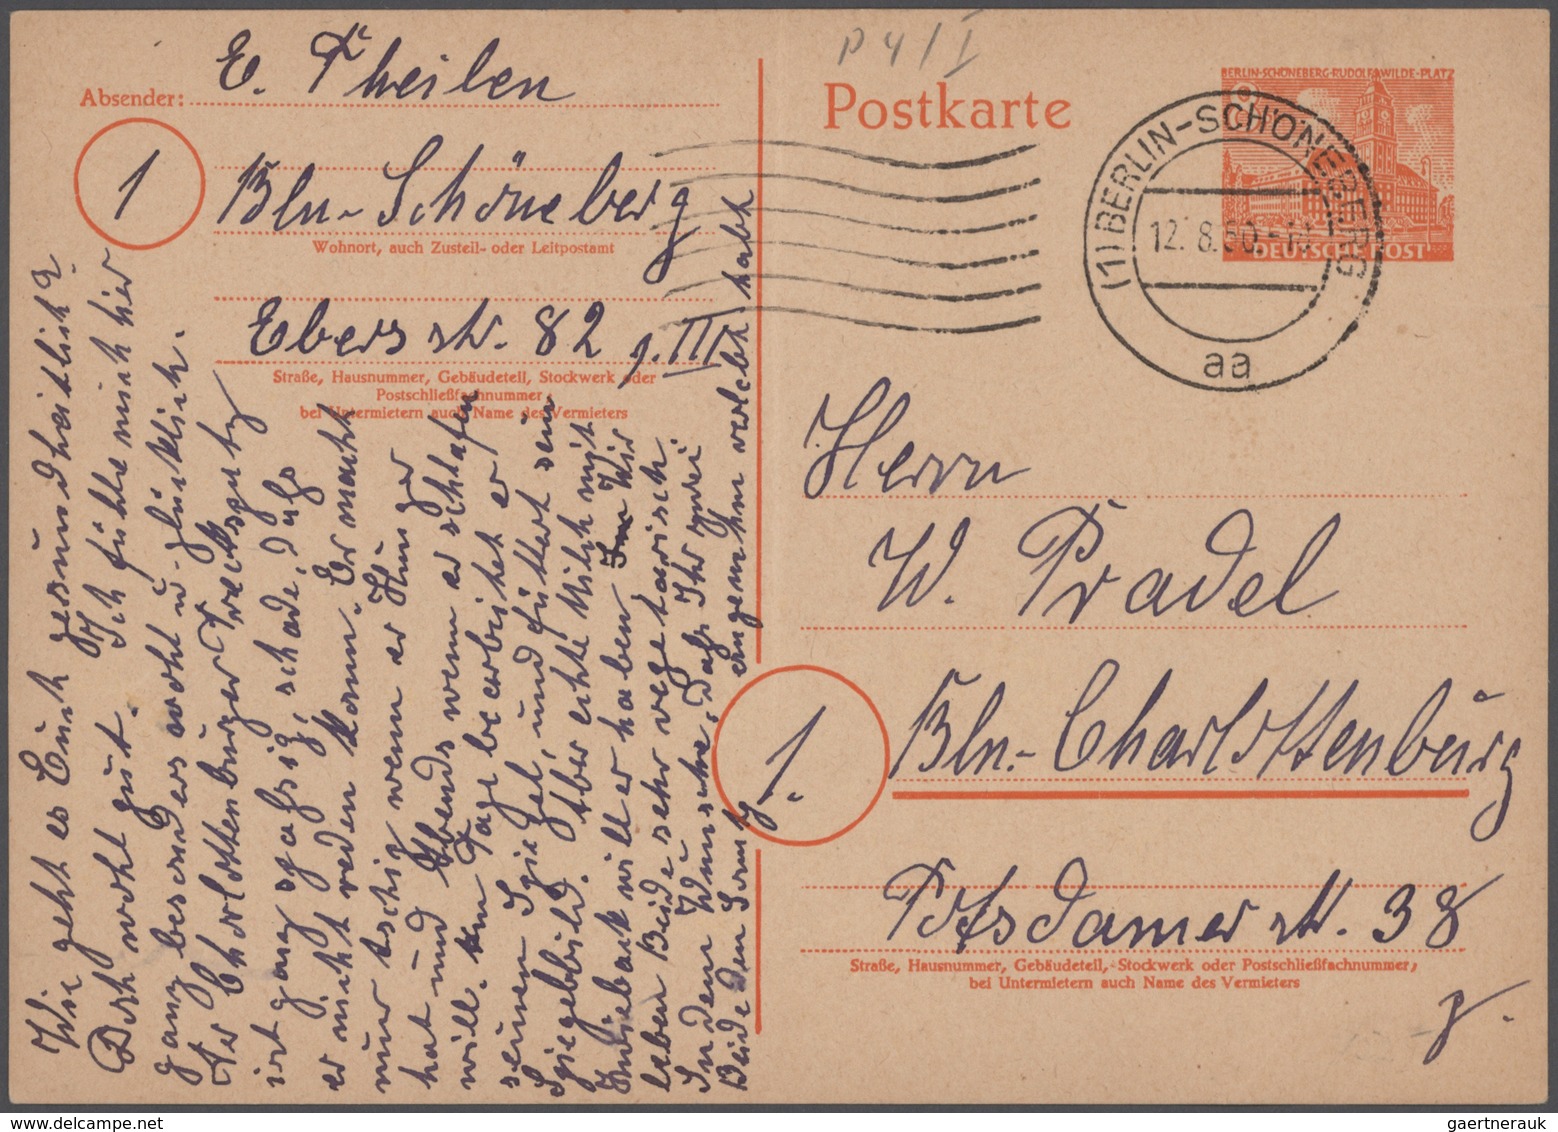 P 4 / I
Absender: E. Theilen
1
Bln-Schöneberg
Wohnort, auch Zustell- oder Leitpostamt
Ebersstr. 82 g. III
Straße, Hausnummer, Gebäudeteil, Stockwerk oder
Postschließfachnummer,
bei Untermietern auch Name des Vermieters
Postkarte
BERLIN-SCHÖNEBERG·RUDOLF WILDE-PLATZ
DEUTSCHE POST
(1) BERLIN-SCHÖNEBERG
12. 8. 50.
aa
Herrn
W. Pradel
1.
Bln.-Charlottenburg
Potsdamerstr. 38
Straße, Hausnummer, Gebäudeteil, Stockwerk oder Postschließfachnummer,
bei Untermietern auch Name des Vermieters
Wie geht es Euch gesundheitlich?
Doch wohl gut. Ich fühle mich hier
ganz besonders wohl u. glücklich.
Der Charlottenburger
ist ganz spaßig, schade, daß
er nicht reden kann. Er macht
nur tschip wenn er Hunger
hat und Abends wenn er schlafen
will. Am Tage bearbeitet er
seinen Spiegel, und füttert sein
Spiegelbild. Aber echte Milch mit
Zwieback will er haben Wir
leben Beide sehr vegetarisch
In dem Wunsche, daß Ihr
Beide den angenehm verlebt habt
gaertnerauk @ www.delcampe.net